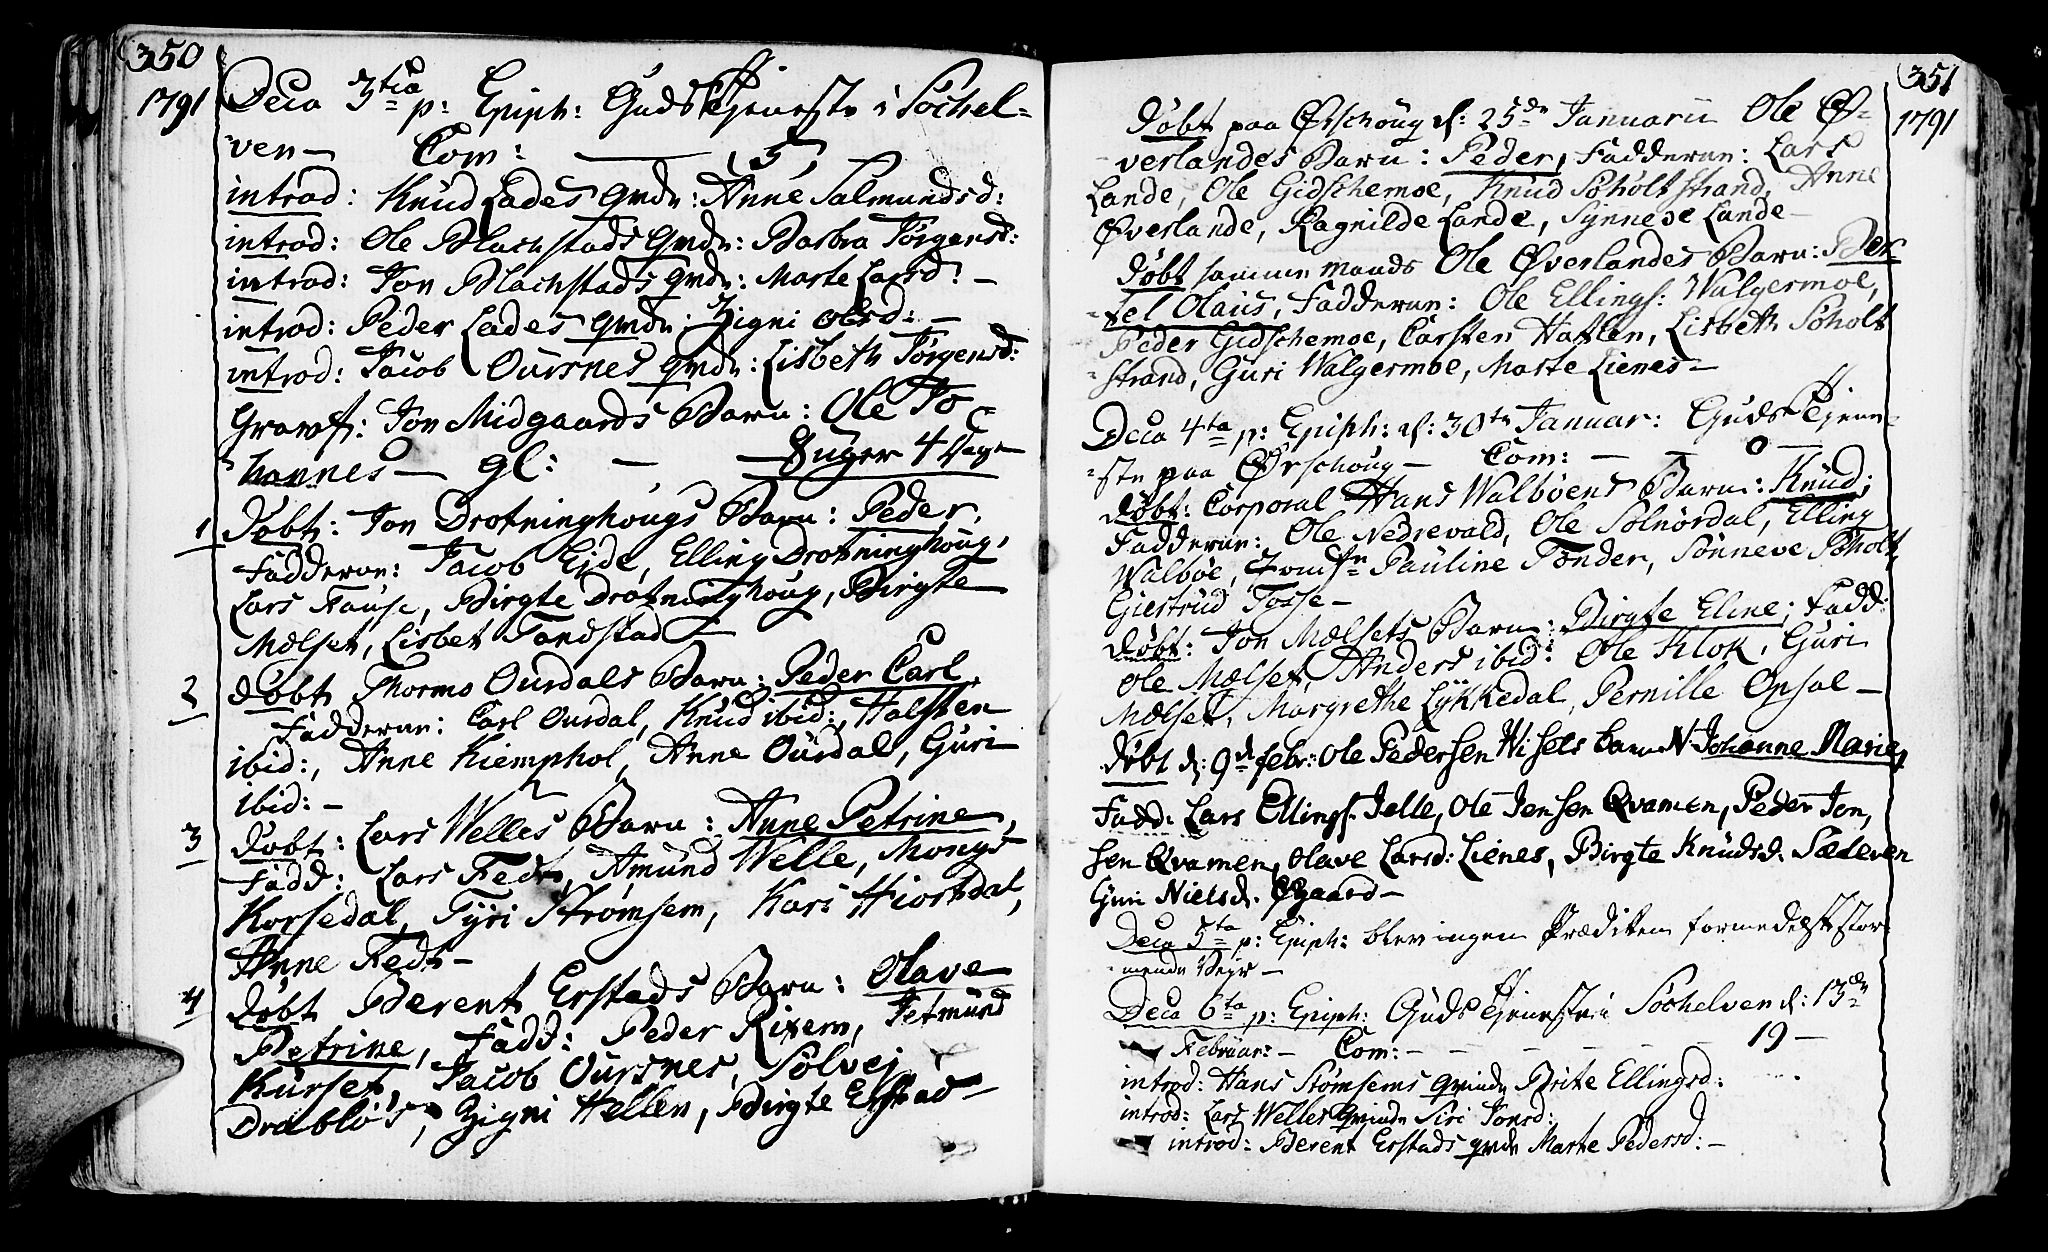 350
1791
Dca 3tia p: Epiph: Guds Tjeneste i Søchel-
ven — Com: — 5
introd: Knud Lades qvde: Anne Salmundsd:
introd: Ole Blachstads Qvde: Barbra Jørgensd:
introd: Jon Blachstads qvde: Marte Larsd: —
introd: Peder Lades qvde: Zigni Olsd: —
introd: Jacob Oursnes qvde: Lisbeth Jørgensd:
Gravf: Jon Midgaards Barn: Ole Jo-
hannes — gl: — 8 uger 4 Dage
1 Døbt: Jon Drotninghougs Barn: Peder,
Fadderne: Jacob Eide, Elling Drotninghoug,
Lars Hause, Birgte Drotninghoug, Birgte
Mælset, Lisbet Tandstad —
2 Døbt Thormo Ourdals Barn: Peder Carl,
Fadderne: Carl Ourdal, Knud ibid:, Halsten
ibid:, Anne Kiemphol, Anne Ourdal, Guri
ibid: —
3 Døbt: Lars Welles Barn: Anne Petrine,
Fadd: Lars Fedt, Amund Welle, Mongs
Korsedal, Tyri Strømsem, Kari Hiortdal,
Anne Fedt —
4 Døbt Berent Erstads Barn: Olave
Petrine, Fadd: Peder Rixem, Jetmund
Kurset, Jacob Oursnes, Sølvej
Drabløs, Zigni Hellen, Birgte Erstad —
351
1791
Døbt paa Ørschoug d: 25de Januarii Ole Ø-
verlandes Barn: Peder, Fadderne: Lars
Lande, Ole Gidschemoe, Knud Søholtstrand, Anne
Øverlande, Ragnilde Lande, Synneve Lande —
Døbt samme mands Ole Øverlandes Barn: Ber-
tel Olaus, Fadderne: Ole Ellings: Walgermoe,
Peder Gidschemoe, Carsten Hatlen, Lisbeth Søholt
strand, Guri Walgermoe, Marte Lienes —
Dca 4ta p: Epiph: d: 30te Januar: Guds Tjene-
ste paa Ørschoug — Com: — — 0 —
Døbt: Corporal Hans Walbøens Barn: Knud;
Fadderne: Ole Nedrevald, Ole Solnørdal, Elling
Walbøe, Jomfr Pauline Tønder, Sønneve Søholt,
Giertrud Tosse —
Døbt: Jon Mælsets Barn: Birgte Eline; Fadd:
Ole Mælset, Anders ibid: Ole Klok, Guri
Mælset, Margrethe Lykkedal, Pernille Opsal —
Døbt d: 9d febr: Ole Pedersen Wisets barn N. Johanne Marie,
Fadd: Lars Ellings. Jelle, Ole Jensen Qvamen, Peder Jon,
sen Qvamen, Olave Larsd: Lienes, Birgte Knudsd. Sædeven
Guri Nielsd. Øgaard —
Dca 5ta p: Epiph: blev ingen Prædiken formedelst stor-
mende Vejr —
Dca 6ta p: Epiph: Guds Tjeneste i Søchelven d: 13de
Februar: — Com: — — — — — 19 —
introd: Hans Stømsems qvinde Brite Ellingsd:
introd: Lars Welles Qvinde Siri Jonsd:
introd: Berent Erstads qvde Marte Pedersd: —